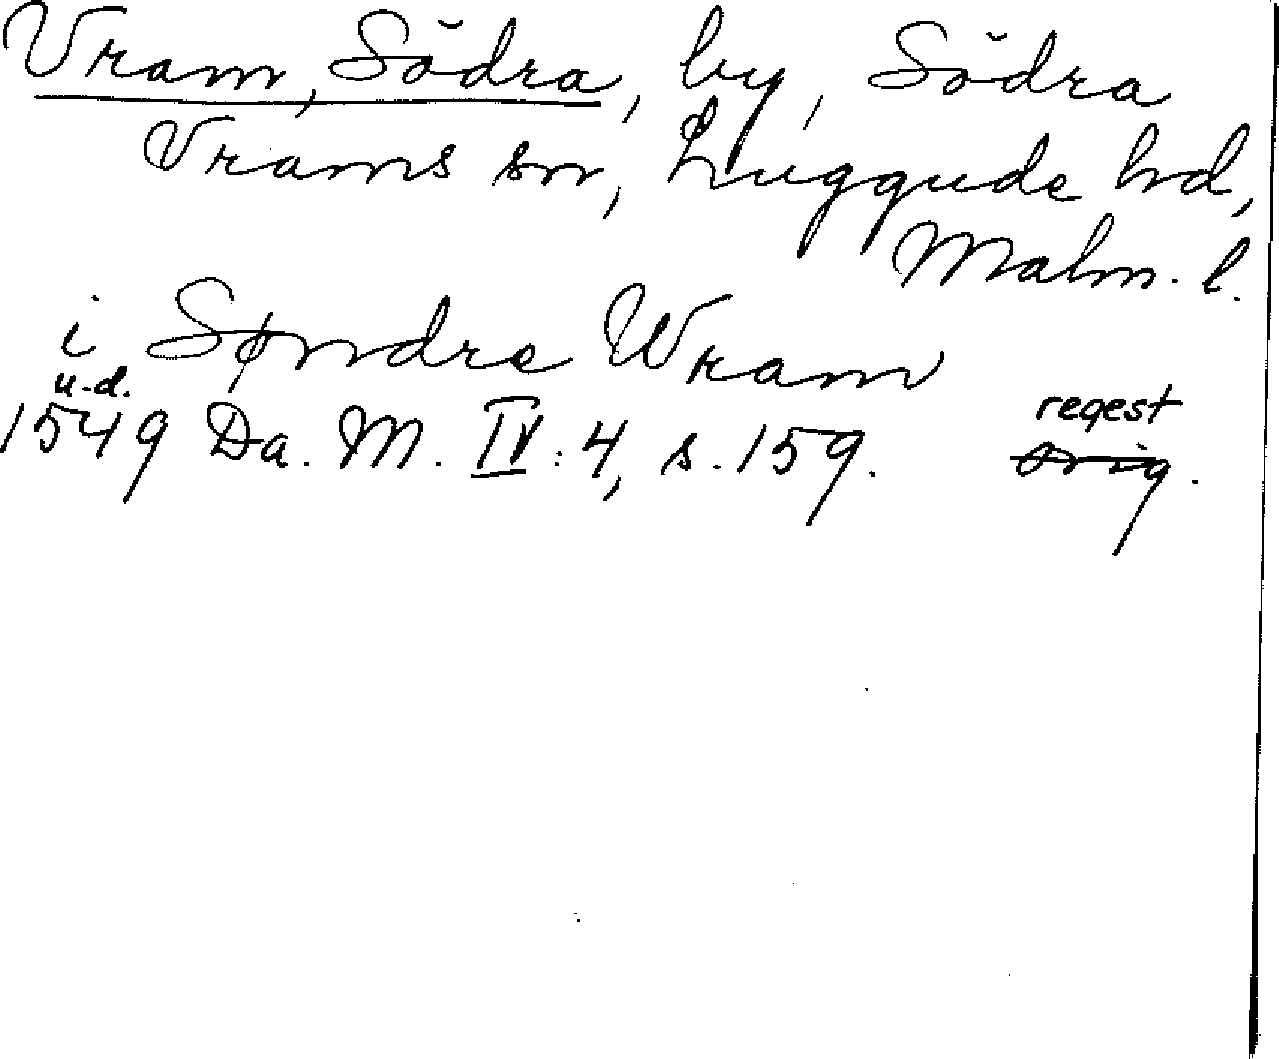 Vram, Södra, by, Södra
Vrams sn, Luggude hd,
Malm. l.
i Søndre Wram
u.d.
1549 Da. M. IV: 4, s. 159. regest
orig.